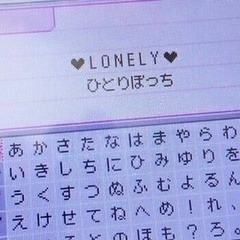 ♥LONELY♥
ひとりぼっち
あかさたなはまやらわ
いきしちにひみゆりを
うくすつぬふむよるん
えけせてねへめ！れ、
こそとのほも？ろ。